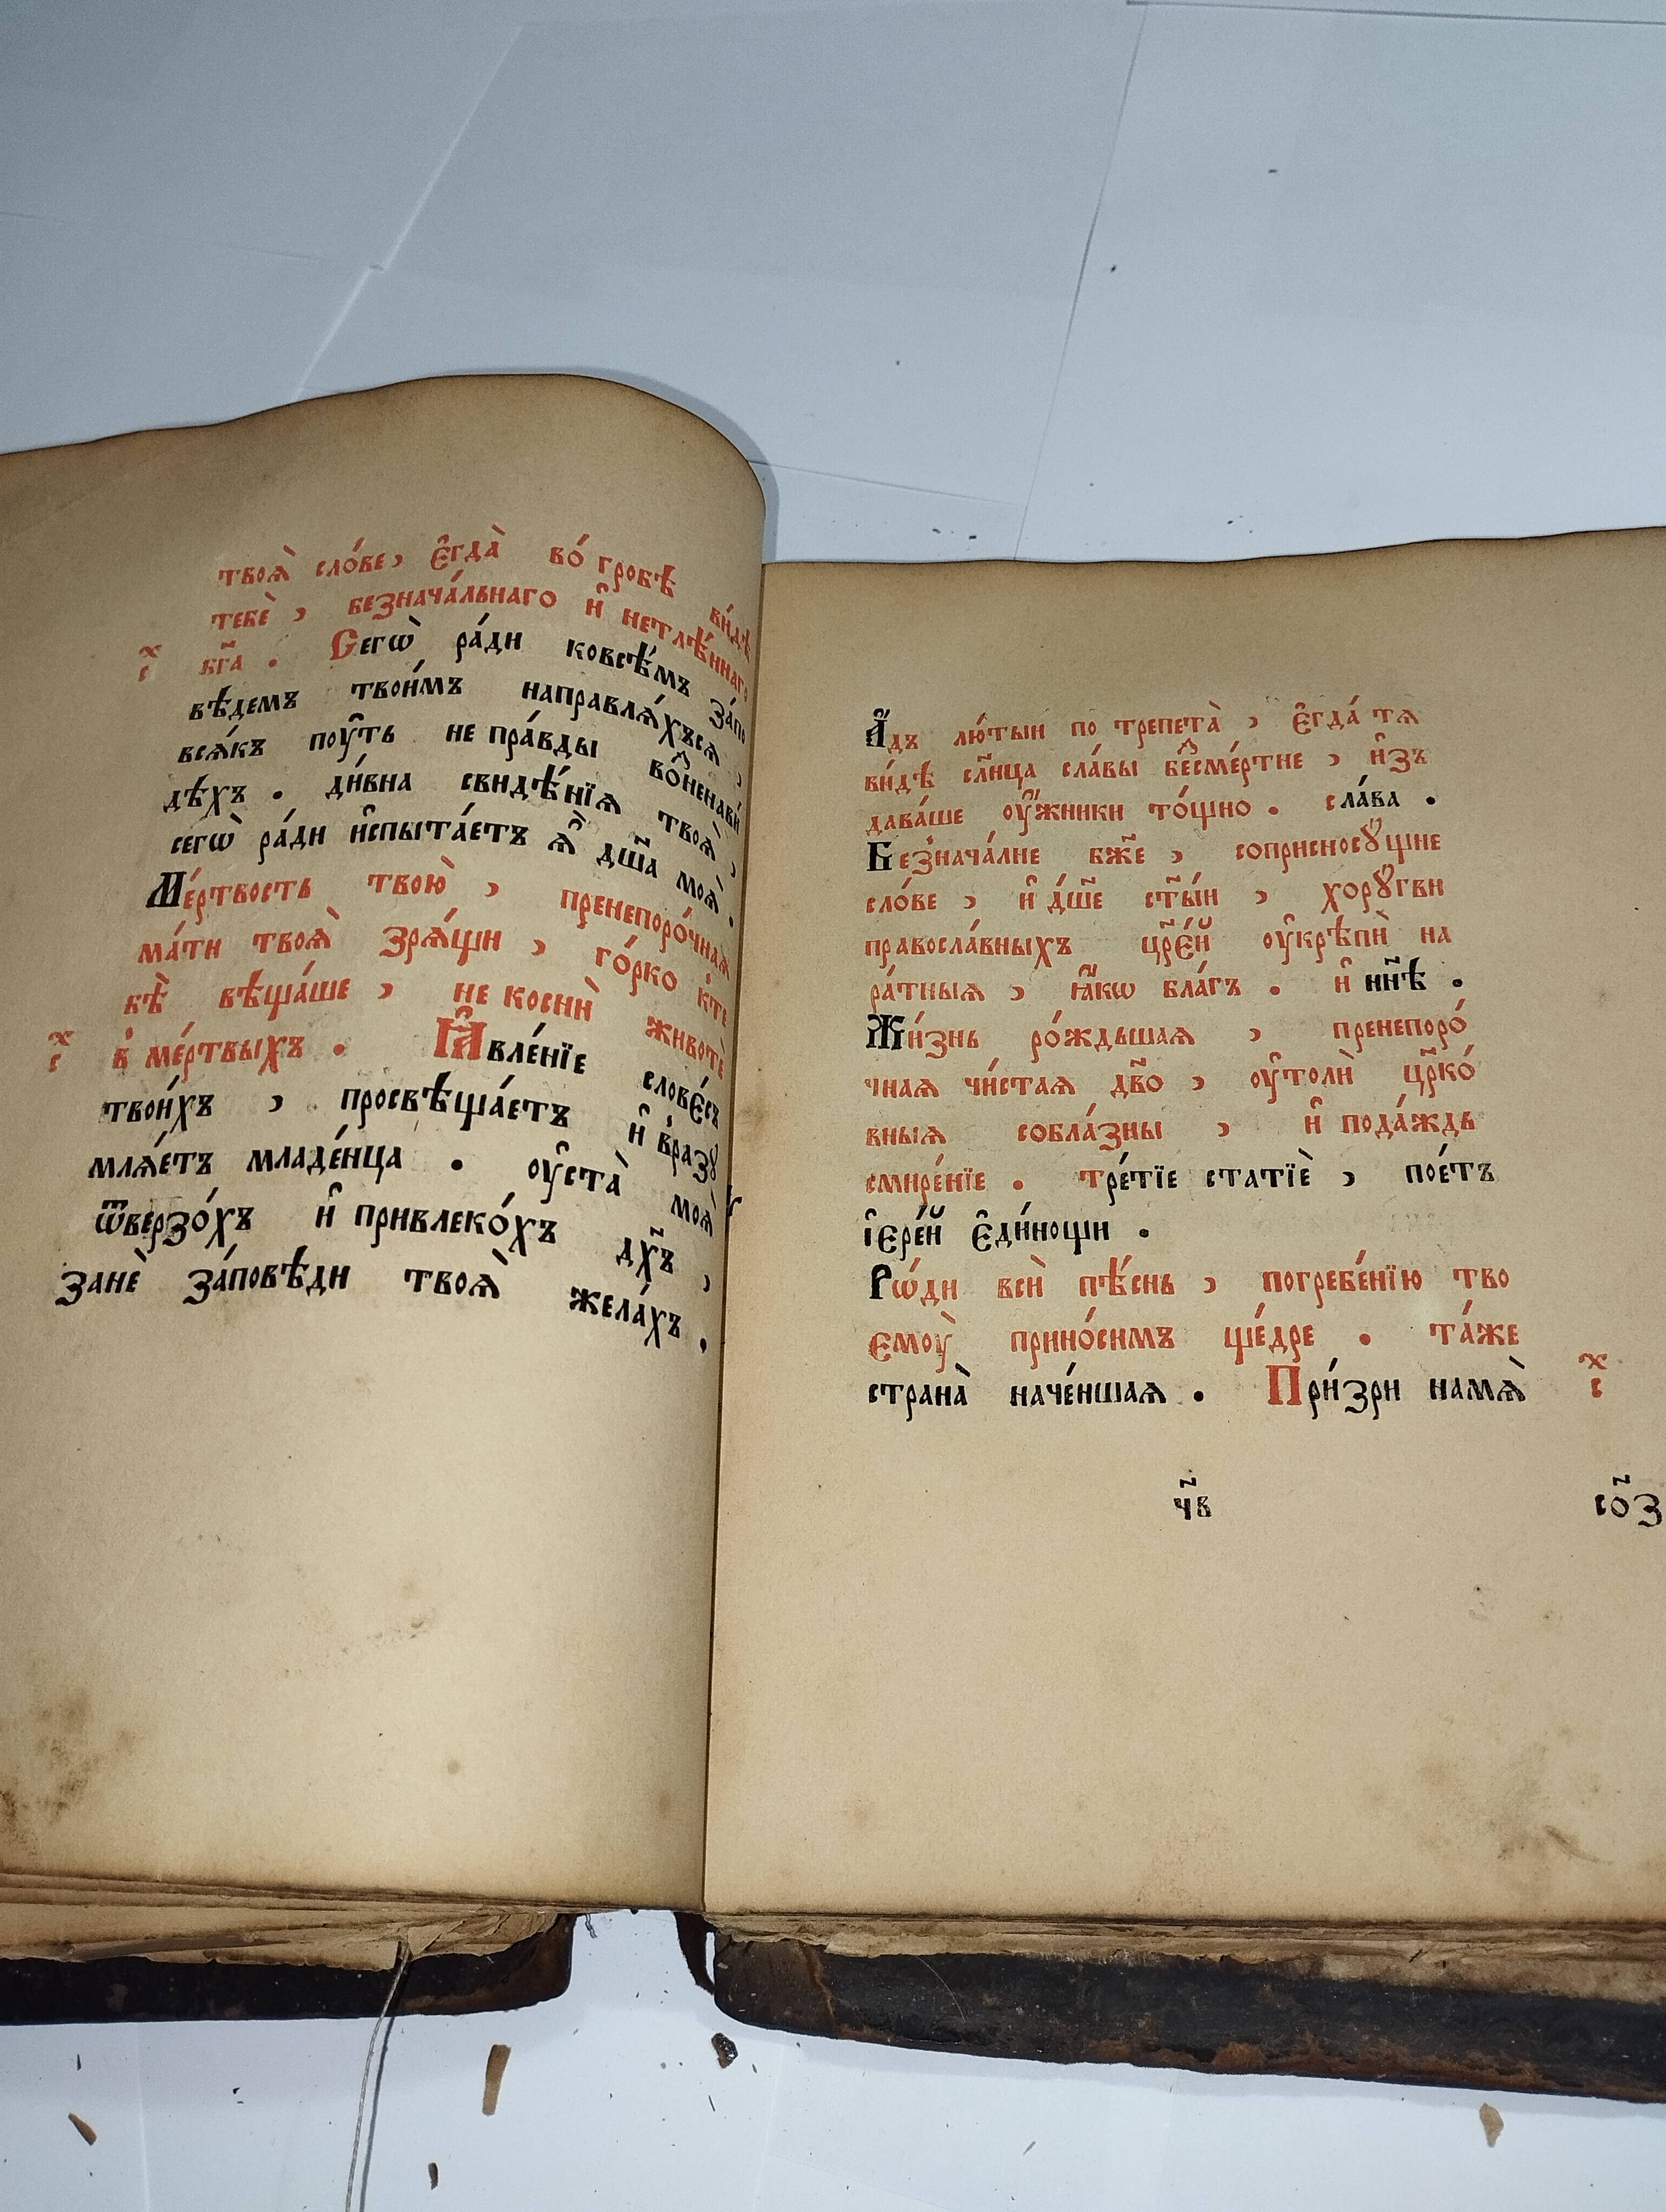 твоѧ̀ сло́ве, є҆гда̀ во́ гробѣ ви́дѣ
тебѐ, безнача́льнаго и҆ нетлѣ́ннаго
бг҃а. Сегѡ̀ ра́ди ковсѣ́мъ за́по
вѣдемъ твои́мъ направлѧ́хъсѧ,
всѧ́къ поу҆ть не пра́вды во̑ненави́
дѣхъ. ди́вна свидѣ́нїѧ твоѧ̀,
сегѡ̀ ра́ди и҆спыта́етъ ѧ҆̀ дш҃а моѧ̀.
Ме́ртвость твою̀, пренепоро́чнаѧ
ма́ти твоѧ̀ зрѧ́щи, го́рко к҆те
бѣ̀ вѣща́ше, не коснѝ животѐ
в҆ ме́ртвыхъ. Ꙗ҆вле́нїе слове́съ
твои́хъ, просвѣща́етъ и҆ в҆разꙋ
млѧ́етъ младе́нца. оу҆ста̀ моѧ̀
ѿверзо́хъ и҆ привлеко́хъ дх҃ъ,
занѐ за́повѣди твоѧ̀ жела́хъ.
А҆́дъ лю́тыи по трепета̀, є҆гда́ тѧ
ви́дѣ сл҃нца сла́вы бе̑сме́ртне, и҆зъ
дава́ше оу҆́жники то́щно. сла́ва.
Безнача́лне бж҃е, соприсносꙋ́щне
сло́ве, и҆ дш҃е ст҃ы́и, хорꙋ́гви
правосла́вныхъ цр҃е́й оу҆крѣпѝ на
ра́тныѧ, ꙗ҆́кѡ бла́гъ. и҆ нн҃ѣ.
Жи́знь ро́ждьшаѧ, пренепоро́
чнаѧ чи́стаѧ дв҃о, оу҆толѝ цр҃ко́
вныѧ собла́зны, и҆ пода́ждь
смире́нїе. тре́тїе статїѐ, пое́тъ
і҆ере́й є҆ди́нощи.
Рѡ́ди всѝ пѣ́снь, погребе́нїю тво
ємоу̀ прино́симъ ще́дре. та́же
страна̀ наче́ншаѧ. При́зри намѧ̀
ч҃в
со҃з